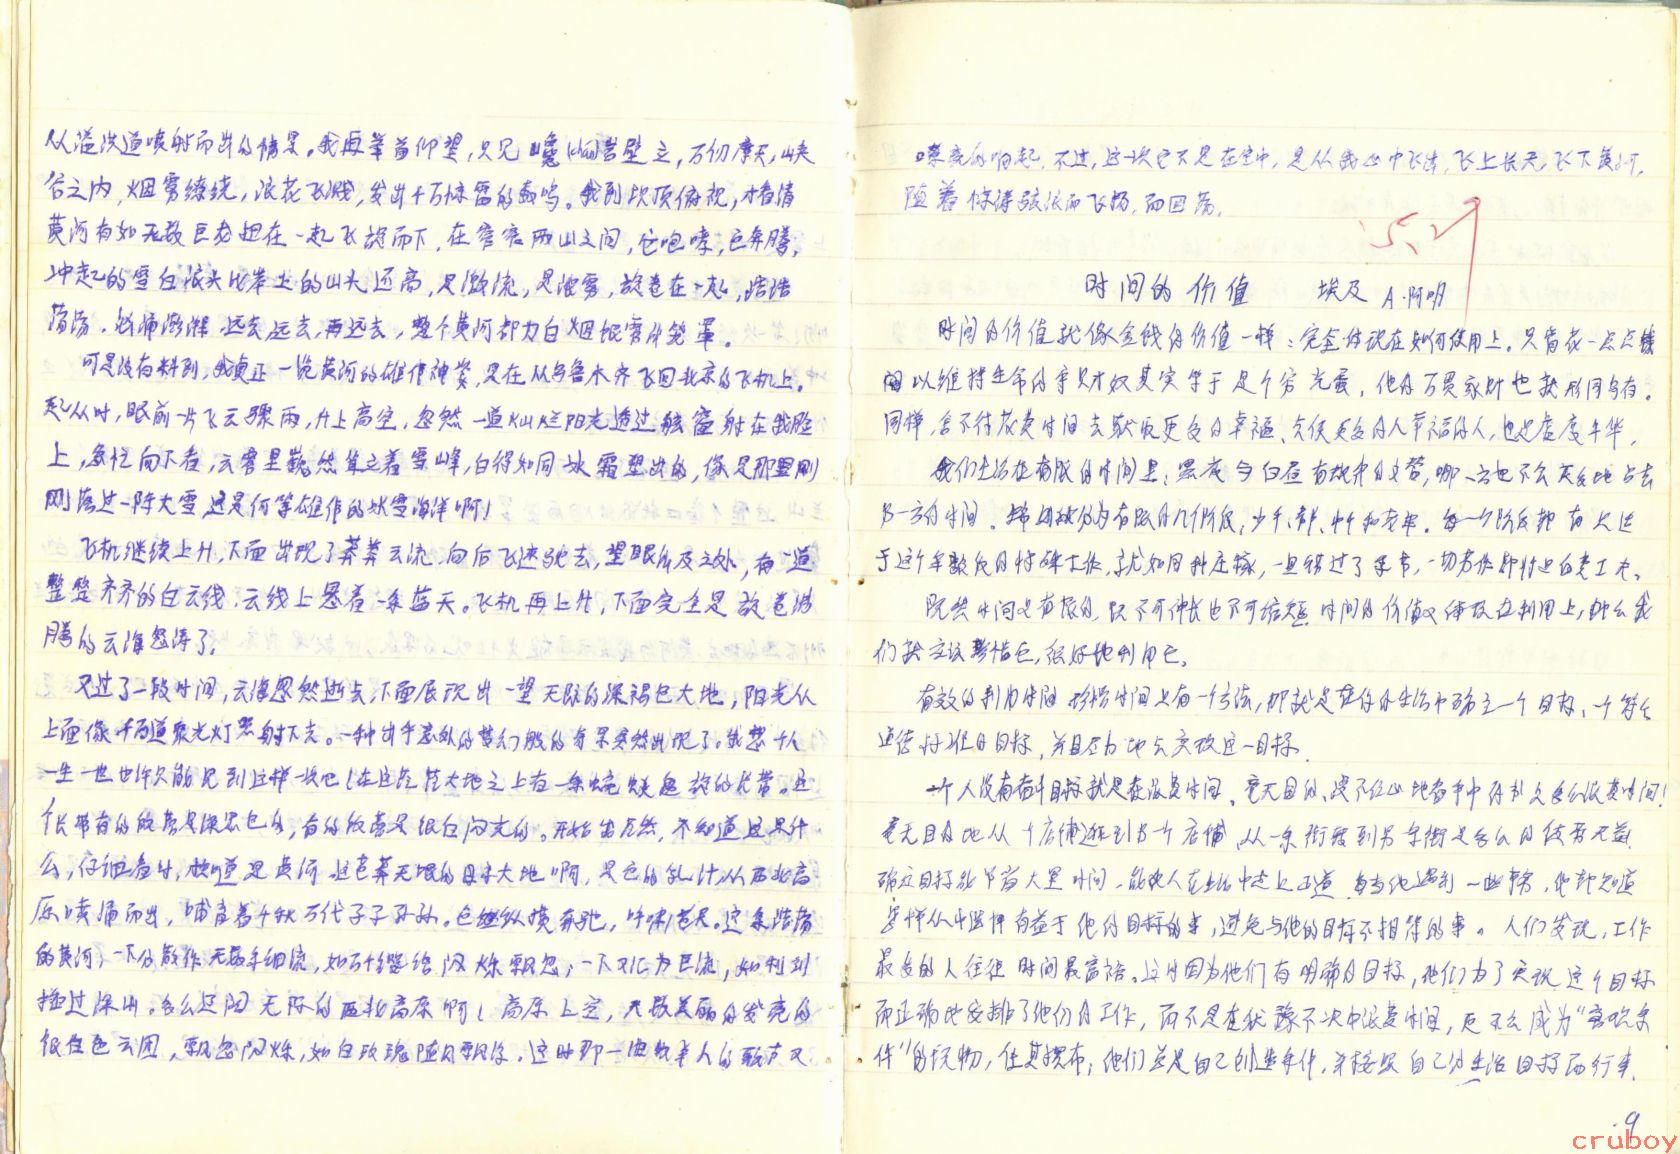 从溢洪道喷射而出的情景。我再举首仰望,只见巉岩壁立,万仞摩天,峡
谷之内,烟雾缭绕,浪花飞溅,发出千万惊雷的轰鸣。我到坝顶俯视,才看清
黄河有如无数巨龙扭在一起飞旋而下,在窄窄两山之间,它咆哮,它奔腾,
冲起的雪白浪头比岸上的山头还高,是激流,是浓雾,旋卷在一起,浩浩
荡荡,远去,远去,再远去,整个黄河都为白烟银雾所笼罩。
可是没有料到,我真正一览黄河的雄伟神姿,是在从乌鲁木齐飞回北京的飞机上。
起飞时,眼前一片飞云骤雨,升上高空,忽然一道灿烂阳光透过舷窗射在我脸
上,急忙向下看,云雾里巍然耸立着雪峰,白得如同冰霜塑出的,像是那里刚
刚落过一阵大雪,这是何等雄伟的冰雪海洋啊!
飞机继续上升,下面出现了莽莽云流,向后飞速驰去,望眼所及之处,有一道
整整齐齐的白云线,云线上悬着一条蓝天。飞机再上升,下面完全是放卷沸
腾的云海怒涛了。
又过了一段时间,云海忽然逝去,下面展现出一望无际的深褐色大地,阳光从
上面像千万道聚光灯照射下去。一种出乎意外的梦幻般的奇景突然出现了。我想千人
一生一世也许只能见到这样一次吧!在这茫茫大地之上有一条蜿蜒盘旋的长带。这
长带有的段落是深黑色的,有的段落是银白闪光的。开始茫然,不知道这是什
么,仔细看时,知道是黄河。这苍莽无垠的母亲大地啊,是它的乳汁,从西北高
原喷涌而出,哺育着千秋万代子子孙孙。它纵横奔驰,呼啸苍天。这条浩荡
的黄河,一下分散作无数条细流,如万千缕丝闪烁飘忽,一下又汇为巨流,如利剑
插过深山。多么辽阔无际的西北高原啊!高原上空,无数美丽的发亮的
银白色云团,飘忽闪烁,如白玫瑰随风飘浮。这时那一曲牧羊人的歌声又
嘹亮的响起,不过,这一次它不是在空中,是从我心中飞出,飞上长天,飞下黄河,
随着惊涛骇浪而飞扬,而回荡。
5.27
时间的价值 埃及 A·阿明
时间的价值就像金钱的价值一样:完全体现在如何使用上。只肯花一点点钱
用以维持生命的守财奴其实等于是个穷光蛋,他的万贯家财也就形同乌有。
同样,舍不得花费时间去获取更多的幸福、与使更多的人幸福的人,也是虚度年华。
我们生活在有限的时间里:黑夜与白昼有规律的交替,哪一方也不会失去地占去
另一方的时间。被分为有限的几个阶段,少年、青年、中年和老年。每一个阶段都有只适
于这个年龄段的特殊工作,就如同种庄稼,一旦错过了季节,一切劳作即付之白费工夫。
既然时间是有限的,既不可伸长也不可缩短,时间的价值又体现在利用上,那么我
们就应该珍惜它,很好地利用它。
有效的利用时间、珍惜时间只有一个方法,那就是在你的生活中确立一个目标、一个符合
道德标准的目标,并且尽力地去实现这一目标。
一个人没有奋斗目标就是在浪费时间。毫无目的、漫不经心地看书中
毫无目的地从一个店铺逛到另一个店铺,从一条街逛到另一条街是多么的徒劳无益。
确立目标能节省大量时间,能使人在生活中走上正道。每当他遇到一些事务,他就知道
怎样从中选择有益于他的目标的事,避免与他的目标不相符的事。人们发现,工作
最多的人往往时间最富裕。这时因为他们有明确的目标,他们为了实现这个目标
而正确地安排了他们的工作,而不是在犹豫不决中浪费时间,更不会成为“客观条
件”的玩物,任其摆布;他们总是自己创造条件,并按照自己的生活目标而行事。
9
cruboy